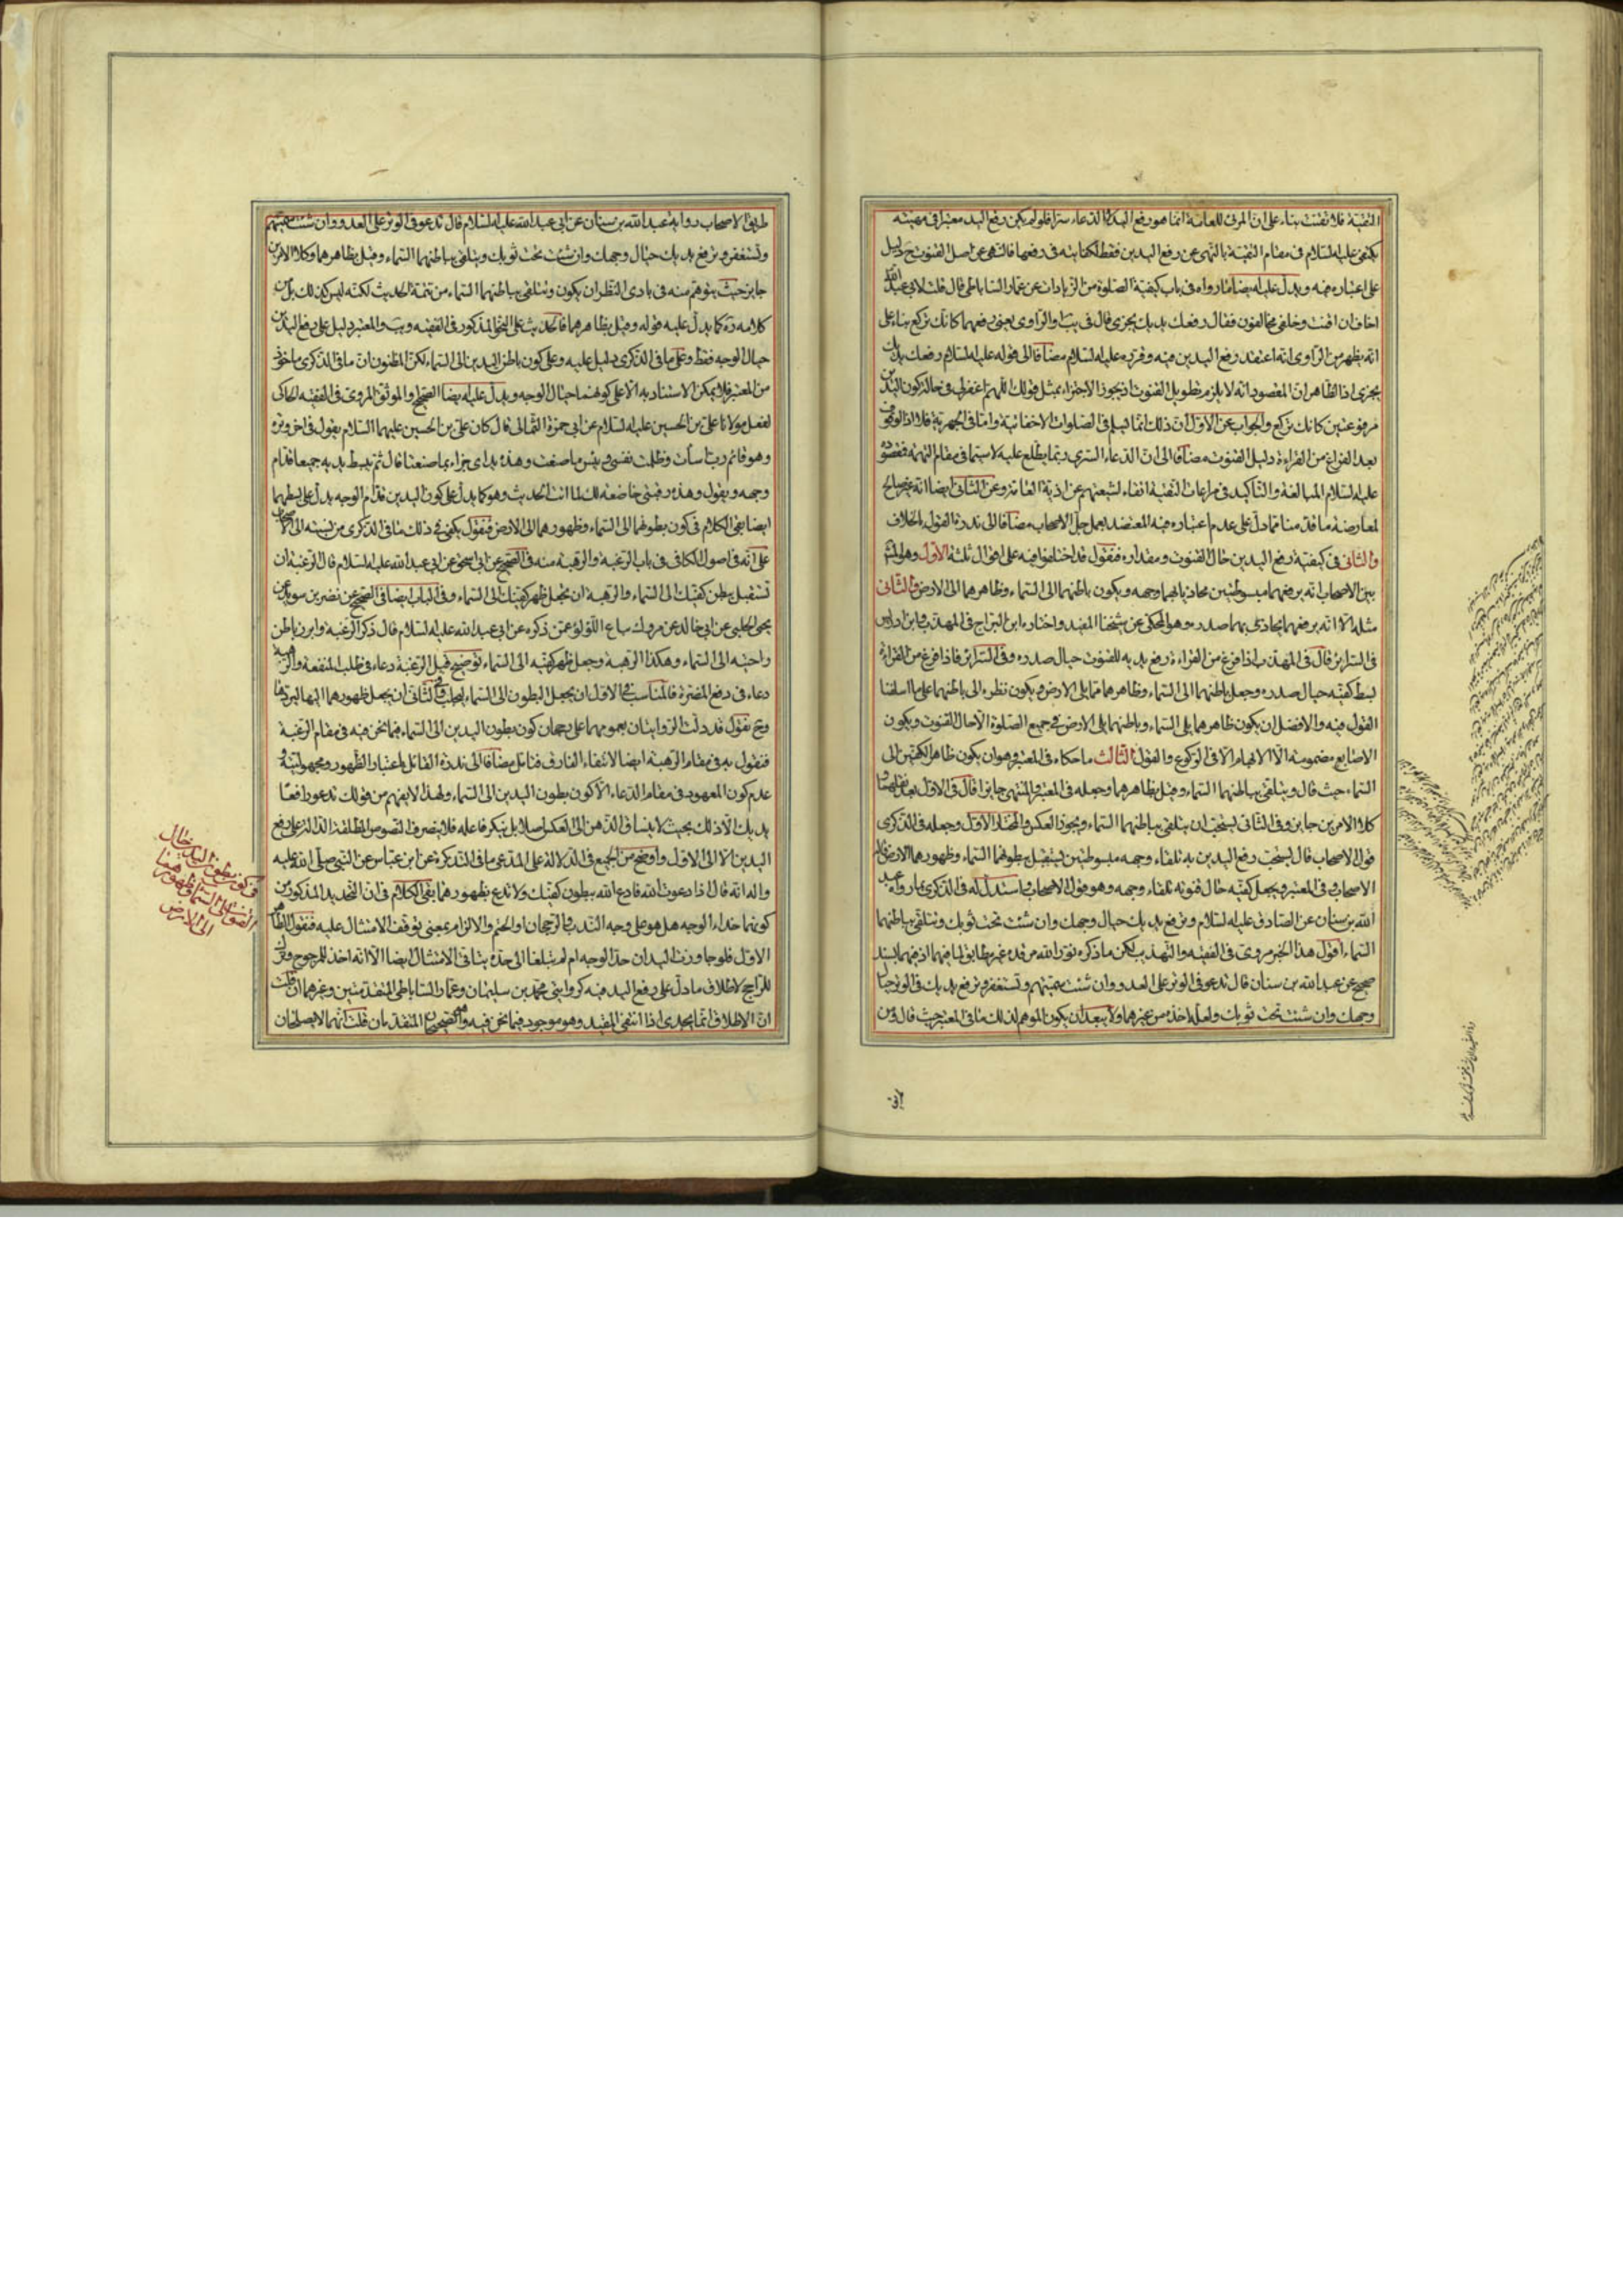 التقية فلا تقنت بناء على ان المرئى للعامة انما هو رفع اليد والدعاء سرا فلو لم يكن رفع اليد معتبرا فى مهيته
يكتفى عليه السلام فى مقام التقية بالنهى عن رفع اليدين فقط لكفايته فى رفعها فالنهى عن اصل القنوت ح دليل
على اعتباره فيه ويدل عليه ايضا ما رواه فى باب كيفية الصلوة من الزيادات عن عمار الساباطى قال قلت لابى عبد الله
اخاف ان اقنت وخلفى مخالفون فقال رفعك يديك يجزى قال فى يب والراوى يعنى رفعهما كانك تركع بناء على
انه يظهر من الراوى انه اعتقد رفع اليدين فيه وقرره عليه السلام مضافا الى قوله عليه السلام رفعك يديك
يجزى اذ الظاهر ان المقصود انه لا يلزم تطويل القنوت اذ يجوز الاجتزاء بمثل قولك اللهم اغفر لى فى حالة كون اليدين
مرفوعتين كانك تركع والجواب عن الاول ان ذلك انما يسلم فى الصلوات الاخفاتية واما فى الجهرية فلا اذ الوقوف
بعد الفراغ من القراءة دليل القنوت مضافا الى ان الدعاء السرى ربما يطلع عليه لا سيما فى مقام التهمة فمقصوده
عليه السلام المبالغة والتاكيد فى مراعات التقية اتقاء لشيعتهم عن اذية العامة وعن الثانى ايضا انه غير صالح
لمعارضة ما قدمنا مما دل على عدم اعتباره فيه المعتضد بعمل جل الاصحاب مضافا الى ندرة القول بالخلاف
والثانى فى كيفية رفع اليدين حال القنوت ومقداره فنقول قد اختلفوا فيه على اقوال ثلثة الاول وهو المشهور
بين الاصحاب انه يرفعهما مبسوطتين محاذيا بهما وجهه ويكون باطنهما الى السماء وظاهرهما الى الارض والثانى
مثله الا انه يرفعهما يحاذى بهما صدره وهو المحكى عن شيخنا المفيد واختاره ابن البراج فى المهذب وابن ادريس
فى السرائر قال فى المهذب اذا فرغ من القراءة رفع يديه للقنوت حيال صدره وفى السرائر فاذا فرغ من القراءة
بسط كفيه حيال صدره وجعل باطنهما الى السماء وظاهرهما مما يلى الارض ويكون نظره الى باطنهما على ما اسلفنا
القول فيه والافضل ان يكون ظاهرهما يلى السماء وباطنهما يلى الارض فى جميع الصلوة الا حال القنوت ويكون
الاصابع مضمومة الا الابهام الا فى الركوع والقول الثالث ما حكاه فى المعتبر وهو ان يكون ظاهر الكفين الى
السماء حيث قال ويتلقى بباطنهما السماء وقيل بظاهرهما وجعله فى المعتبر والمنتهى جايزا قال فى الاول بعد نقلهما
كلا الامرين جايز وفى الثانى يستحب ان يتلقى بباطنهما السماء ويجوز العكس والمختار الاول وجعله فى الذكرى
قول الاصحاب قال يستحب رفع اليدين به تلقاء وجهه مبسوطتين يستقبل ببطونهما السماء وظهورهما الارض قاله
الاصحاب وفى المعتبر ويجعل كفيه حال قنوته تلقاء وجهه وهو قول الاصحاب واستدل له فى الذكرى بما رواه عبد
الله بن سنان عن الصادق عليه السلام وترفع يديك حيال وجهك وان شئت تحت ثوبك وتتلقى بباطنهما
السماء اقول هذا الخبر مروى فى الفقيه والتهذيب لكن ما ذكره نور الله مرقده غير مطابق لما فيهما اذ فيهما بسند
صحيح عن عبد الله بن سنان قال تدعو فى الوتر على العدو وان شئت سميتهم وتستغفر وترفع يديك فى الوتر حيال
وجهك وان شئت تحت ثوبك ولعله اخذه من غيرهما ولا يبعد ان يكون الموهم لذلك ما فى المعتبر حيث قال ومن
طريق الاصحاب رواية عبد الله بن سنان عن ابى عبد الله عليه السلام قال تدعو فى الوتر على العدو وان شئت سميتهم
وتستغفر وترفع يديك حيال وجهك وان شئت تحت ثوبك ويتلقى بباطنهما السماء وقيل بظاهرهما وكلا الامرين
جايز حيث يتوهم منه فى بادى النظر ان يكون وتتلقى بباطنهما السماء من تتمة الحديث لكنه ليس كذلك بل من
كلامه ره كما يدل عليه قوله وقيل بظاهرهما فالحديث على النحو المذكور فى الفقيه ويب والمعتبر دليل على رفع اليدين
حيال الوجه فقط وعلى ما فى الذكرى دليل عليه وعلى كون باطن اليدين الى السماء لكن المظنون ان ما فى الذكرى ماخوذ
من المعتبر فلا يمكن الاستناد به الا على كونهما حيال الوجه ويدل عليه ايضا الصحيح او الموثق المروى فى الفقيه الحاكى
لفعل مولانا على بن الحسين عليه السلام عن ابى حمزة الثمالى قال كان على بن الحسين عليهما السلام يقول فى اخر وتره
وهو قائم رب اسأت وظلمت نفسى وبئس ما صنعت وهذه يداى جزاء بما صنعتا قال ثم يبسط يديه جميعا قدام
وجهه ويقول وهذه رقبتى خاضعة لك لما اتت الحديث وهو كما يدل على كون اليدين قدام الوجه يدل على بسطهما
ايضا بقى الكلام فى كون بطونهما الى السماء وظهورهما الى الارض فنقول يكفى فى ذلك ما فى الذكرى من نسبته الى الاصحاب
على انه فى اصول الكافى فى باب الرغبة والرهبة منه فى الصحيح عن ابى اسحق عن ابى عبد الله عليه السلام قال الرغبة ان
تستقبل ببطن كفيك الى السماء والرهبة ان تجعل ظهر كفيك الى السماء وفى الباب ايضا فى الصحيح عن نضر بن سويد عن
يحيى الحلبى عن ابى خالد عن مروك بياع اللؤلؤ عمن ذكره عن ابى عبد الله عليه السلام قال ذكر الرغبة وابرز باطن
راحتيه الى السماء وهكذا الرهبة وجعل ظهر كفيه الى السماء توضيح قيل الرغبة دعاء فى طلب المنفعة والرهبة
دعاء فى دفع المضرة فالمناسب فى الاول ان يجعل البطون الى السماء ليطلب وفى الثانى ان يجعل ظهورهما اليها
وح نقول قد دلت الروايتان بعمومهما على رجحان كون بطون اليدين الى السماء فيما نحن فيه فى مقام الرغبة
فنقول به فى مقام الرهبة ايضا لانتفاء الفارق فتامل مضافا الى ندرة القائل باعتبار الظهور ومجهوليته و
عدم كون المعهود فى مقام الدعاء الا كون بطون اليدين الى السماء ولهذا لا يفهم من قولك تدعو رافعا
يديك الا ذلك بحيث لا ينساق الذهن الى العكس اصلا بل ينكر فاعله فلا ينصرف النصوص المطلقة الدالة على رفع
اليدين الا الى الاول واوضح من الجميع فى الدلالة على المدعى ما فى التذكرة عن ابن عباس عن النبى صلى الله عليه
واله انه قال اذا دعوت الله فادع الله ببطون كفيك ولا تدع بظهورهما بقى الكلام فى ان التحديد المذكور من
كونهما حذاء الوجه هل هو على وجه الندب والرجحان او الحتم والالزام بمعنى توقف الامتثال عليه فنقول الظاهر
الاول فلو جاوزت اليدان حد الوجه ام لم تبلغا الى حده يتاتى الامتثال ايضا الا انه اخذ للمرجوح وترك
للراجح لاطلاق ما دل على رفع اليد فيه كروايتى محمد بن سليمان وعمار الساباطى المتقدمتين وغيرهما ان قلت
ان الاطلاق انما يجدى اذا انتفى المقيد وهو موجود فيما نحن فيه وهو الصحيحان المتقدمان قلت انهما لا يصلحان
فى كون بطون اليدين حال
القنوت الى السماء وظهورهما
الى الارض